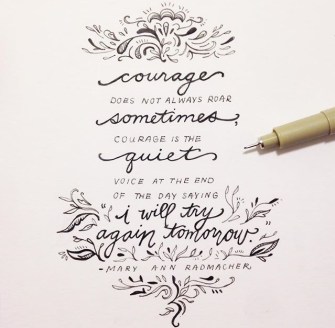 courage
DOES NOT ALWAYS ROAR
sometimes,
COURAGE IS THE
quiet
VOICE AT THE END
OF THE DAY SAYING
"i will try
again tomorrow."
-MARY ANN RADMACHER